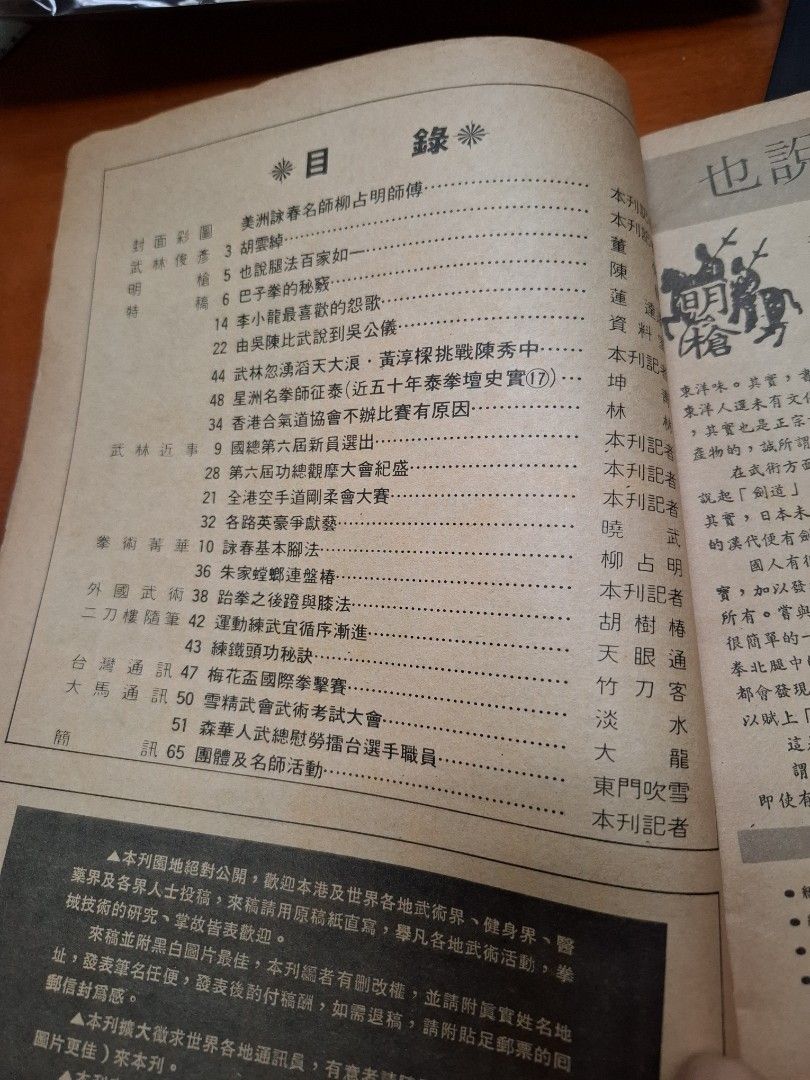 目錄
封面彩圖 美洲詠春名師柳占明師傅 本刊
武林俊彥 3 胡雲綽 本刊
明槍 5 也說腿法百家如一 董
特稿 6 巴子拳的秘竅 陳
14 李小龍最喜歡的怨歌 蓮
22 由吳陳比武說到吳公儀 資料
44 武林忽湧滔天大浪·黃淳樑挑戰陳秀中 本刊記者
48 星洲名拳師征泰(近五十年泰拳壇史實⑰) 坤
34 香港合氣道協會不辦比賽有原因 林
武林近事 9 國總第六屆新員選出 本刊記者
28 第六屆功總觀摩大會紀盛 本刊記者
21 全港空手道剛柔會大賽 本刊記者
32 各路英豪爭獻藝 曉武
拳術菁華 10 詠春基本腳法 柳占明
36 朱家螳螂連盤樁 本刊記者
外國武術 38 跆拳之後蹬與膝法 胡樹椿
二刀樓隨筆 42 運動練武宜循序漸進 天眼通
43 練鐵頭功秘訣 竹刀客
台灣通訊 47 梅花盃國際拳擊賽 淡水
大馬通訊 50 雪精武會武術考試大會 大龍
51 森華人武總慰勞擂台選手職員 東門吹雪
簡訊 65 團體及名師活動 本刊記者
▲本刊園地絕對公開,歡迎本港及世界各地武術界、健身界、醫
藥界及各界人士投稿,來稿請用原稿紙直寫,舉凡各地武術活動,拳
械技術的研究、掌故皆表歡迎。
來稿並附黑白圖片最佳,本刊編者有刪改權,並請附眞實姓名地
址,發表筆名任便,發表後酌付稿酬,如需退稿,請附貼足郵票的回
郵信封爲感。
▲本刊擴大徵求世界各地通訊員,有意者請
圖片更佳)來本刊。
也說
明槍
東洋味。其實,
東洋人還未有文化
,其實也是正宗
產物的,誠所謂
在武術方面
說起「劍道」
其實,日本未
的漢代便有劍
國人有很
寶,加以發
所有。當與
很簡單的一
拳北腿中
都會發現
以賦上「
這
謂
即使有